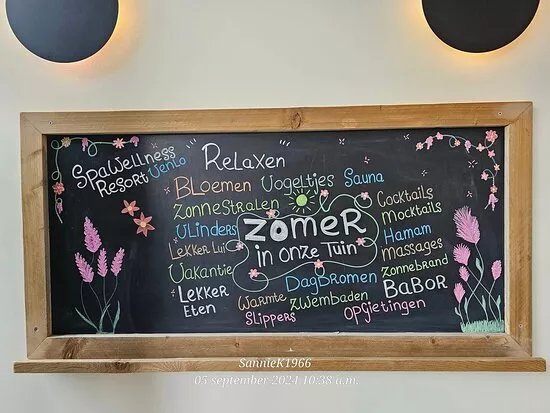 SpaWellness
Resort Venlo
Relaxen
Bloemen Vogeltjes Sauna
Zonnestralen
Vlinders
Lekker Lui
Vakantie
Lekker
Eten
Zomer
in onze Tuin
DagBromen
Warmte Zwembaden
Slippers
Opgietingen
Cocktails
Mocktails
Hamam
Massages
Zonnebrand
BaBoR
SannieK1966
05 september 2024 10:38 a.m.